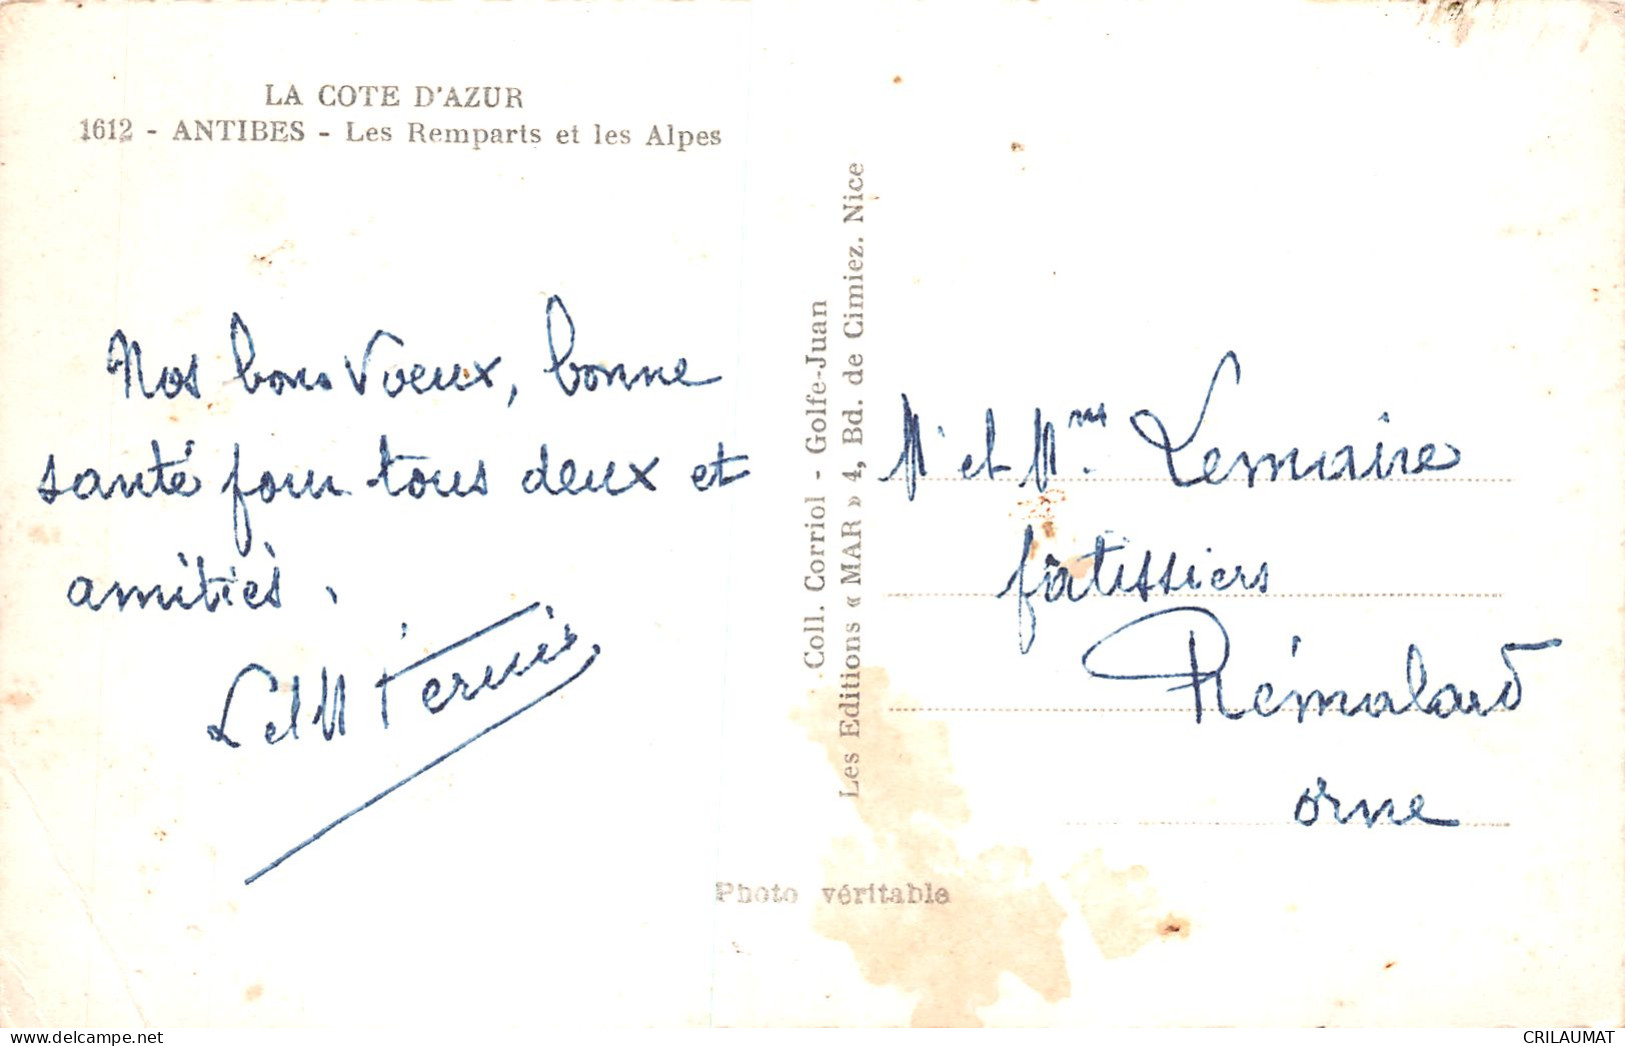 LA COTE D'AZUR
1612 - ANTIBES - Les Remparts et les Alpes
Nos bons Voeux, bonne
santé pour tous deux et
amitiés.
L et M
Coll. Corriol - Golfe-Juan
Les Editions « MAR » 4, Bd. de Cimiez. Nice
Photo véritable
M et Mme Lemaire
pâtissiers
Rémalard
Orne
CRILAUMAT